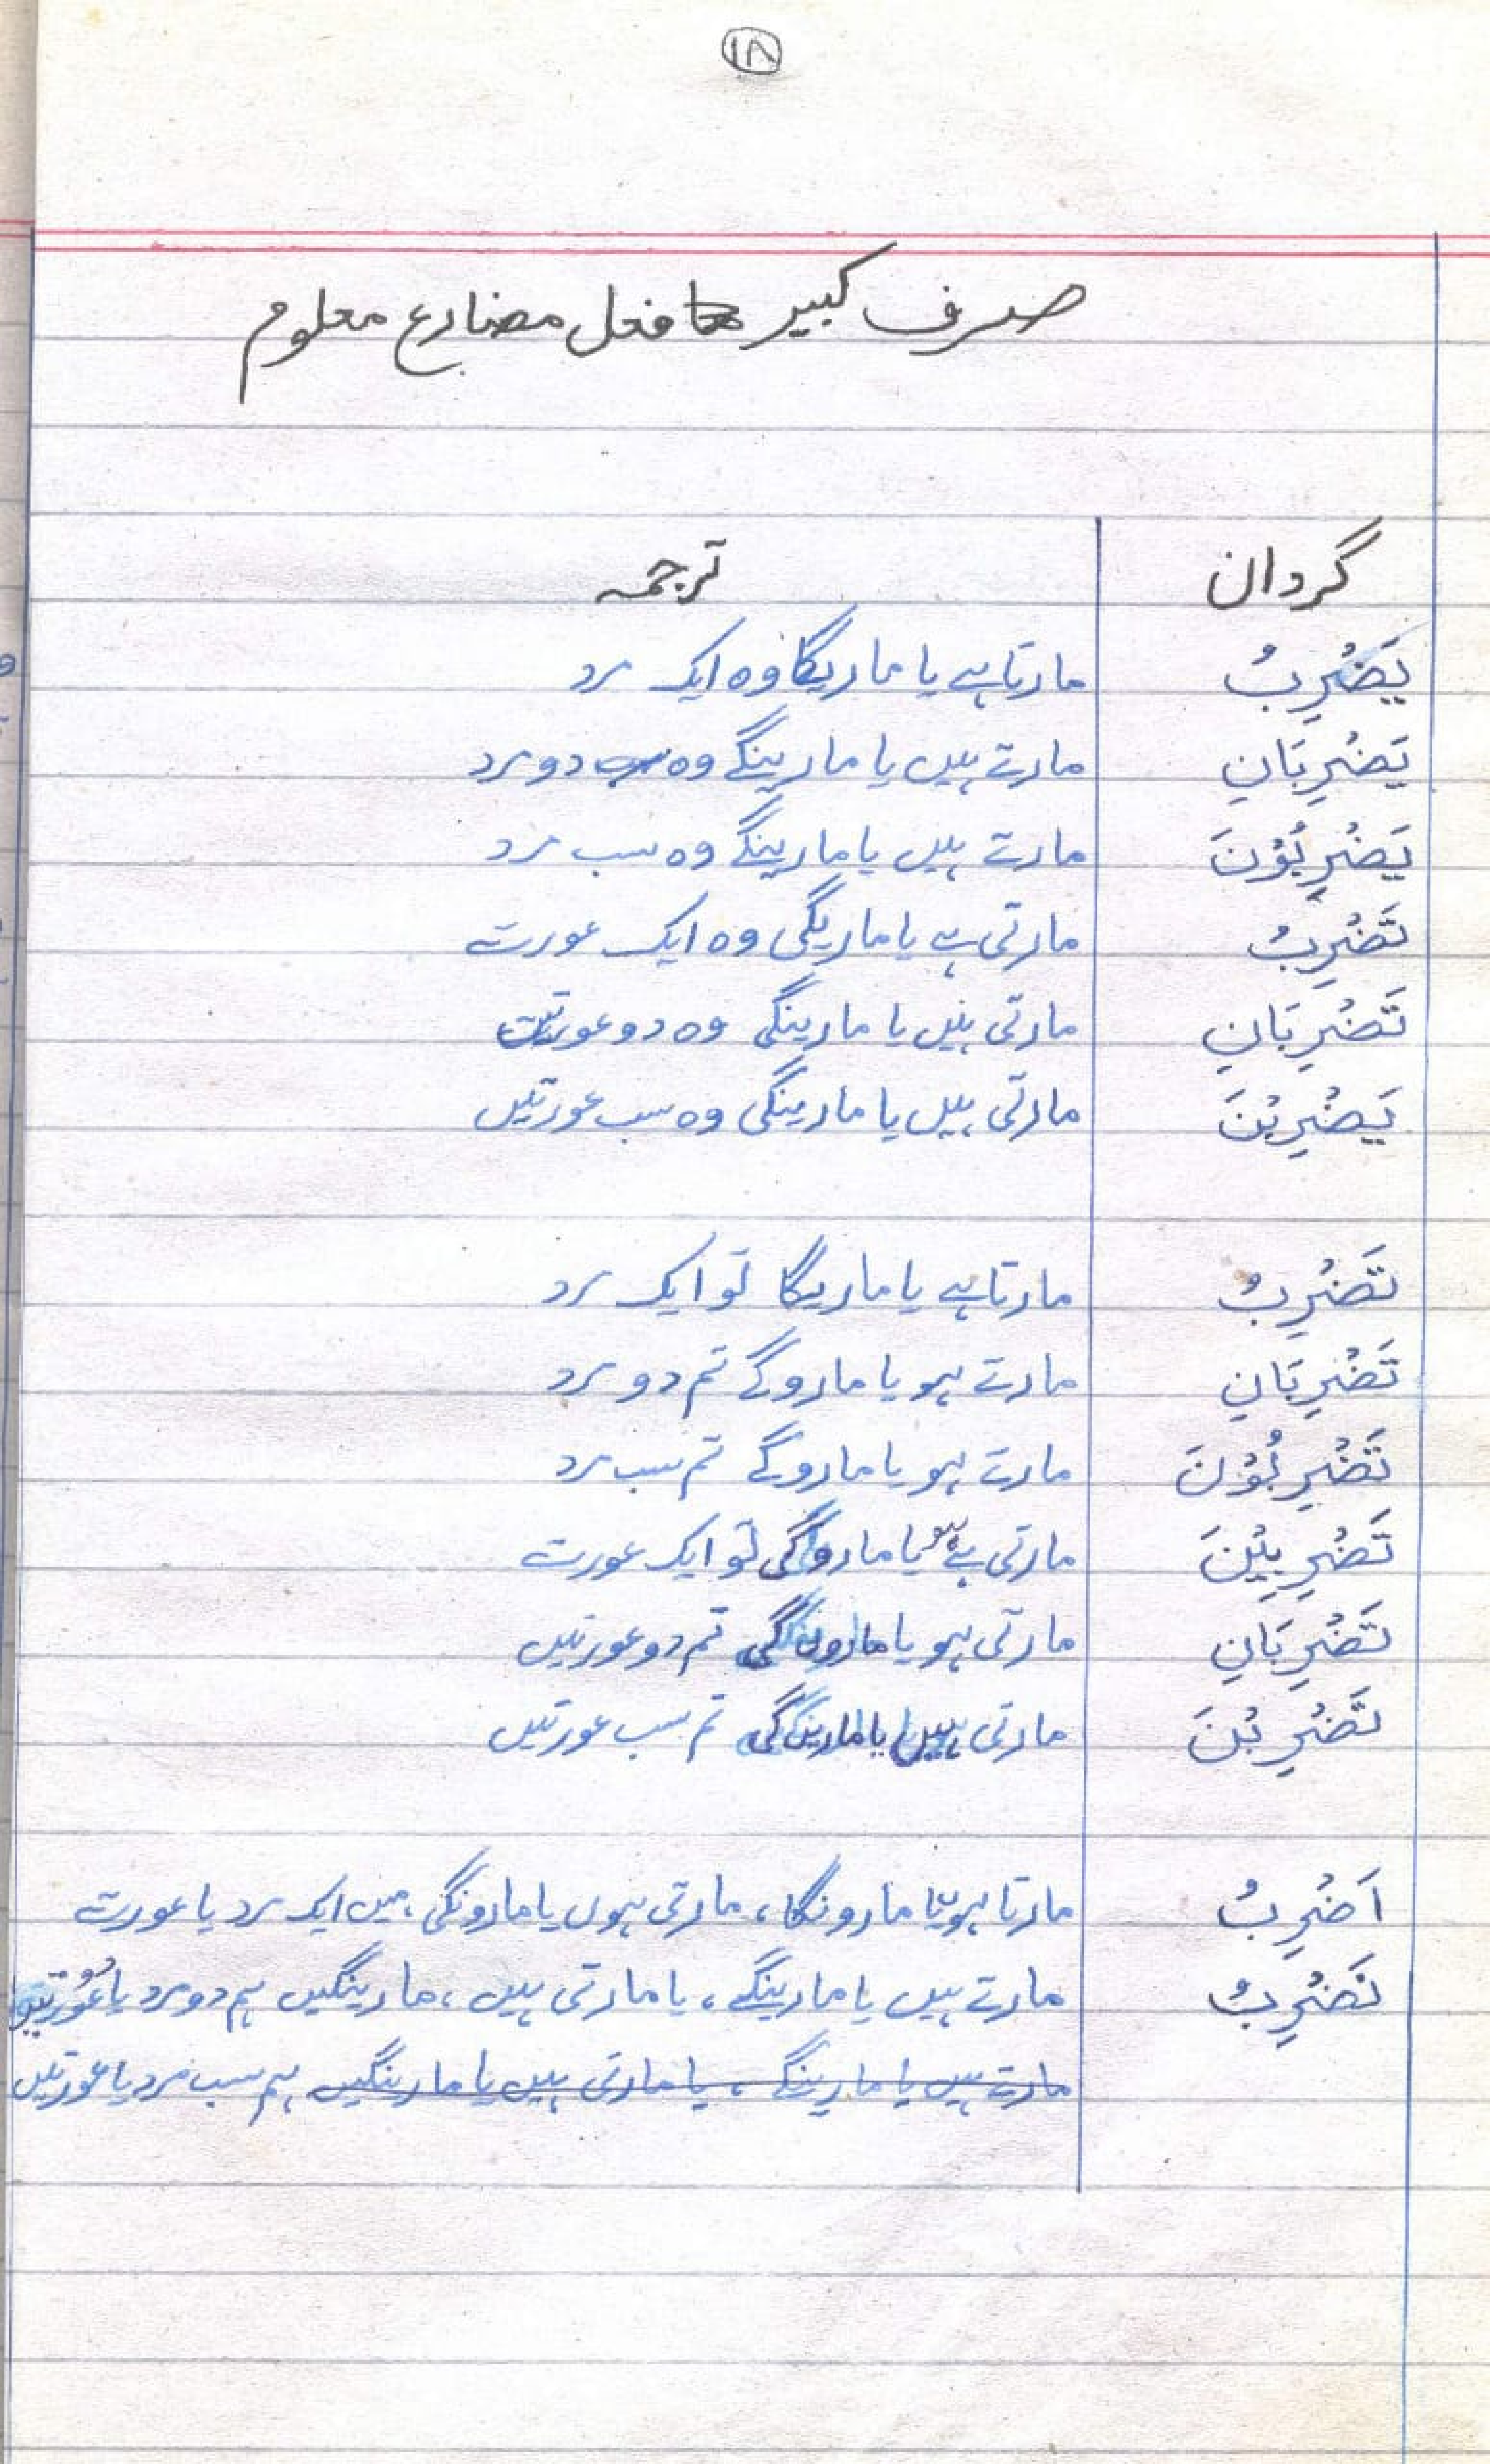 ۱۸
صرف کبیر فعل مضارع معلوم
گردان ترجمہ
يَضْرِبُ مارتا ہے یا ماریگا وہ ایک مرد
يَضْرِبَانِ مارتے ہیں یا مارینگے وہ دو مرد
يَضْرِبُوْنَ مارتے ہیں یا مارینگے وہ سب مرد
تَضْرِبُ مارتی ہے یا ماریگی وہ ایک عورت
تَضْرِبَانِ مارتی ہیں یا مارینگی وہ دو عورتیں
يَضْرِبْنَ مارتی ہیں یا مارینگی وہ سب عورتیں
تَضْرِبُ مارتا ہے یا ماریگا تو ایک مرد
تَضْرِبَانِ مارتے ہو یا ماروگے تم دو مرد
تَضْرِبُوْنَ مارتے ہو یا ماروگے تم سب مرد
تَضْرِبِيْنَ مارتی ہو یا ماروگی تو ایک عورت
تَضْرِبَانِ مارتی ہو یا ماروگی تم دو عورتیں
تَضْرِبْنَ مارتی ہیں یا مارینگی تم سب عورتیں
اَضْرِبُ مارتا ہوں یا مارونگا، مارتی ہوں یا مارونگی، میں ایک مرد یا عورت
نَضْرِبُ مارتے ہیں یا مارینگے، یا مارتی ہیں، مارینگیں ہم دو مرد یا عورتیں
مارتے ہیں یا مارینگے، یا مارتی ہیں یا مارینگیں ہم سب مرد یا عورتیں